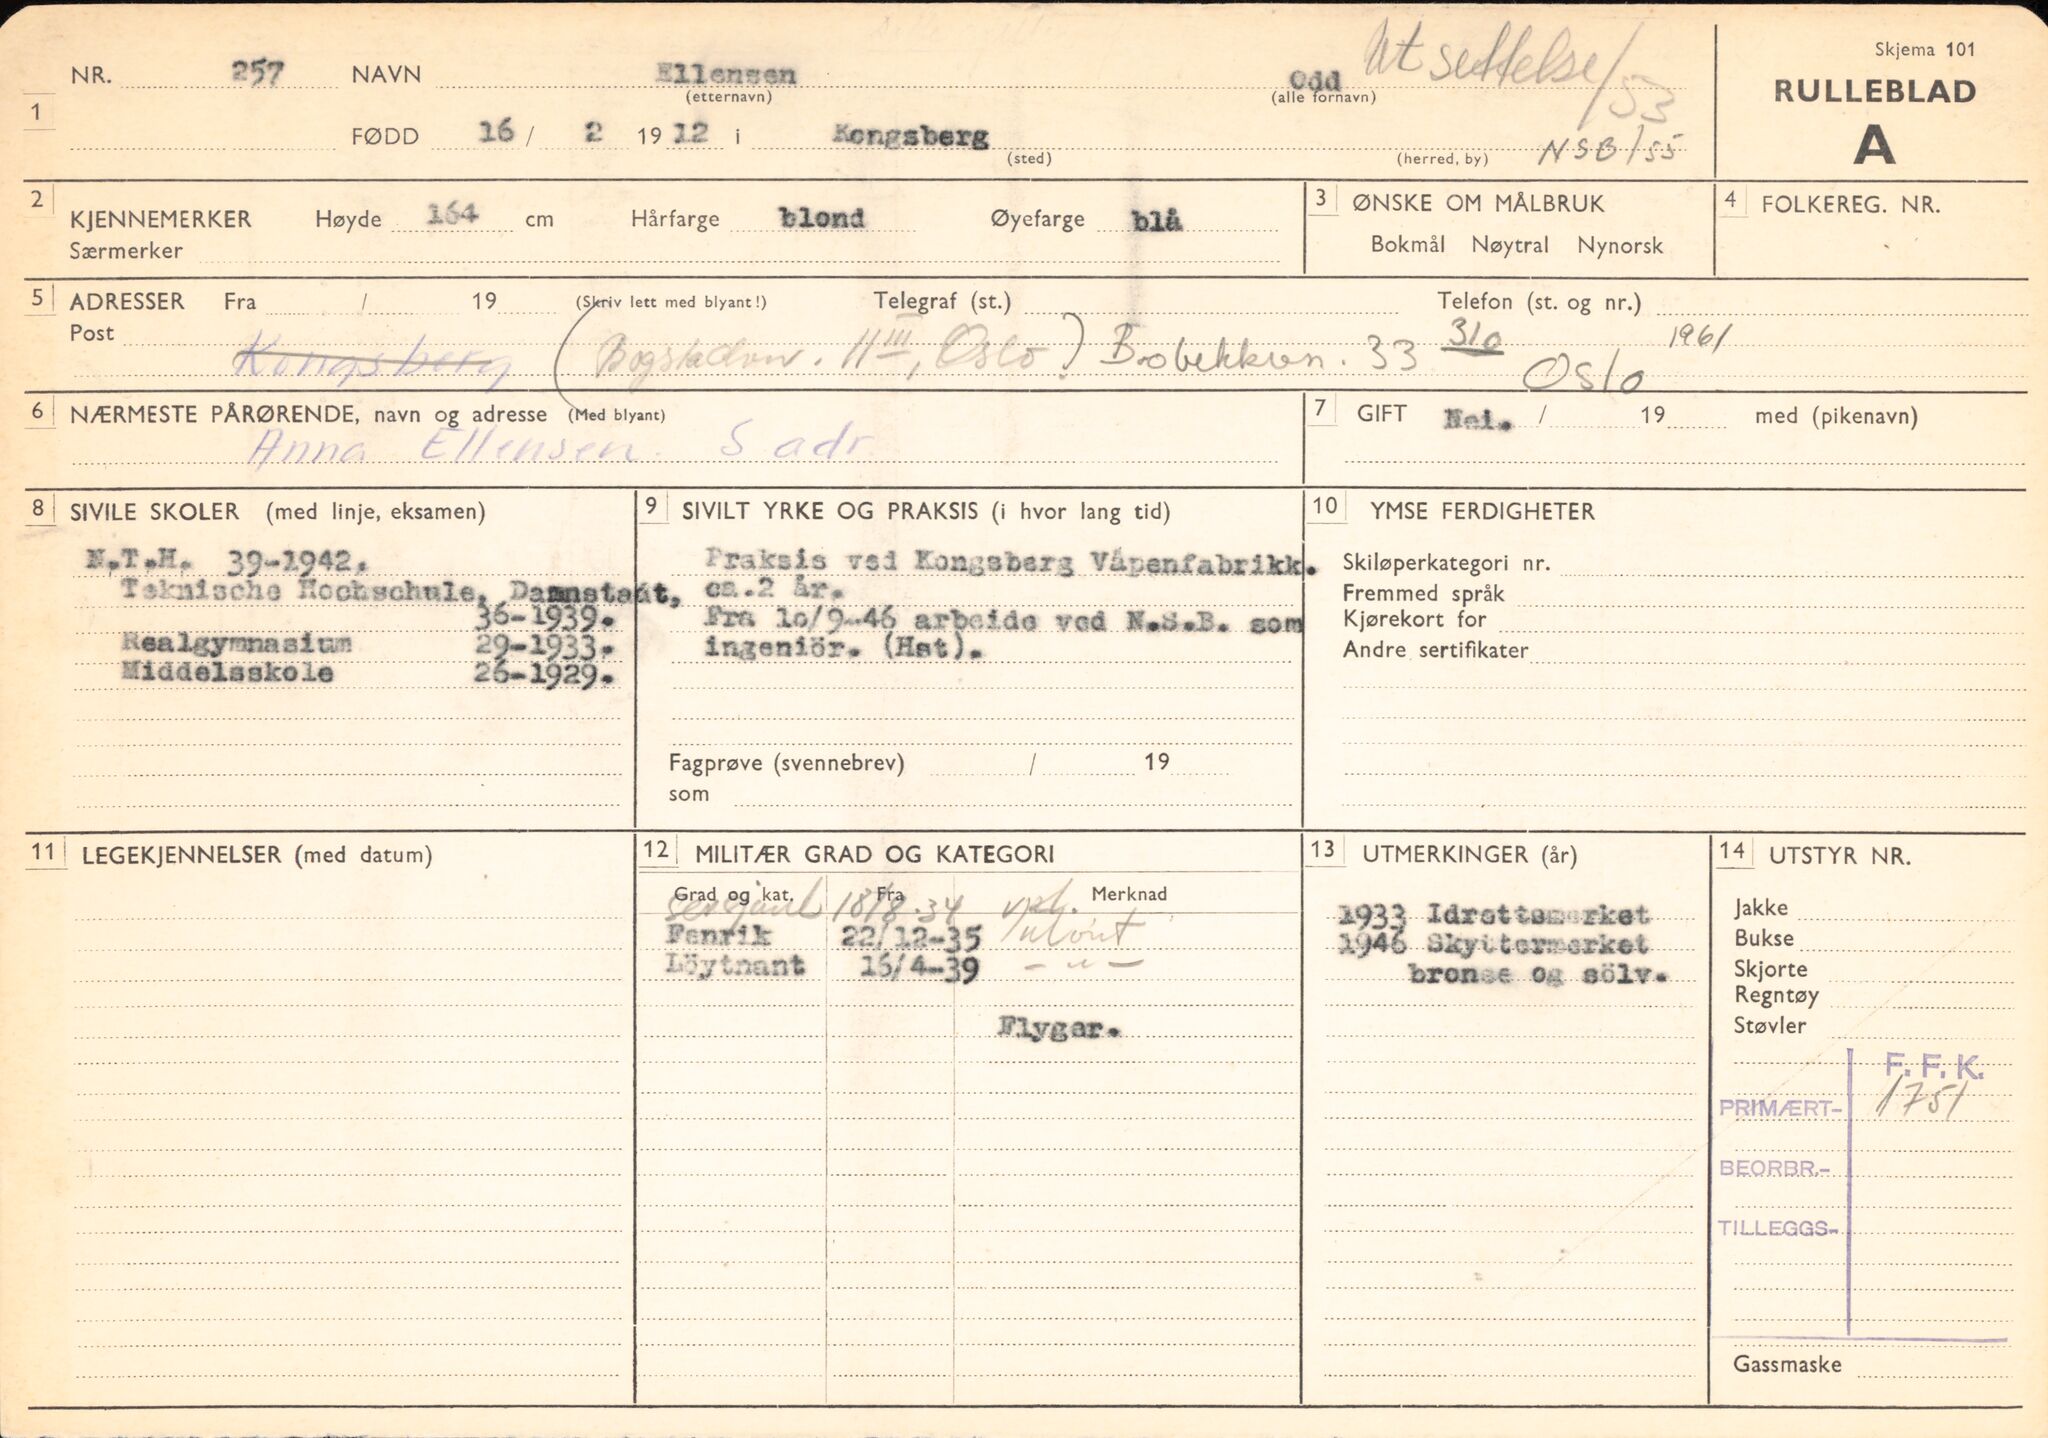 Skjema 101
RULLEBLAD
A
Utsettelse/53
NSB/55
1 NR. 257 NAVN Ellensen Odd
(etternavn) (alle fornavn)
FØDD 16 / 2 19 12 i Kongsberg
(sted) (herred, by)
2 KJENNEMERKER Høyde 164 cm Hårfarge blond Øyefarge blå
Særmerker
3 ØNSKE OM MÅLBRUK
Bokmål Nøytral Nynorsk
4 FOLKEREG. NR.
5 ADRESSER Fra / 19 (Skriv lett med blyant!) Telegraf (st.) Telefon (st. og nr.)
Post
Kongsberg (Bogstadvn. 11 III, Oslo) Brobekkvn. 33 310 Oslo 1961
6 NÆRMESTE PÅRØRENDE, navn og adresse (Med blyant)
Anna Ellensen. S adr.
7 GIFT Nei. / 19 med (pikenavn)
8 SIVILE SKOLER (med linje, eksamen)
N.T.H. 39-1942.
Teknische Hochschule, Damnstadt,
36-1939.
Realgymnasium 29-1933.
Middelsskole 26-1929.
9 SIVILT YRKE OG PRAKSIS (i hvor lang tid)
Praksis ved Kongsberg Våpenfabrikk.
ca. 2 år.
Fra 10/9-46 arbeide ved N.S.B. som
ingeniör. (Hst).
Fagprøve (svennebrev) / 19
som
10 YMSE FERDIGHETER
Skiløperkategori nr.
Fremmed språk
Kjørekort for
Andre sertifikater
11 LEGEKJENNELSER (med datum)
12 MILITÆR GRAD OG KATEGORI
Grad og kat. Fra Merknad
sersjant 18/8.34 vpl.
Fenrik 22/12-35
Löytnant 16/4-39 - " -
Flyger.
13 UTMERKINGER (år)
1933 Idrettsmerket
1946 Skyttermerket
bronse og sölv.
14 UTSTYR NR.
Jakke
Bukse
Skjorte
Regntøy
Støvler
F. F. K.
PRIMÆRT- 1751
BEORBR.-
TILLEGGS-
Gassmaske